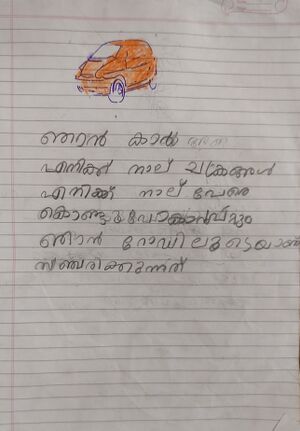 ഞാൻ കാർ
എനിക്ക് നാല് ചക്രങ്ങൾ
എനിക്ക് നാല് പേരെ
കൊണ്ടുപോകാൻപറ്റും
ഞാൻ റോഡിലൂടെയാണ്
സഞ്ചരിക്കുന്നത്